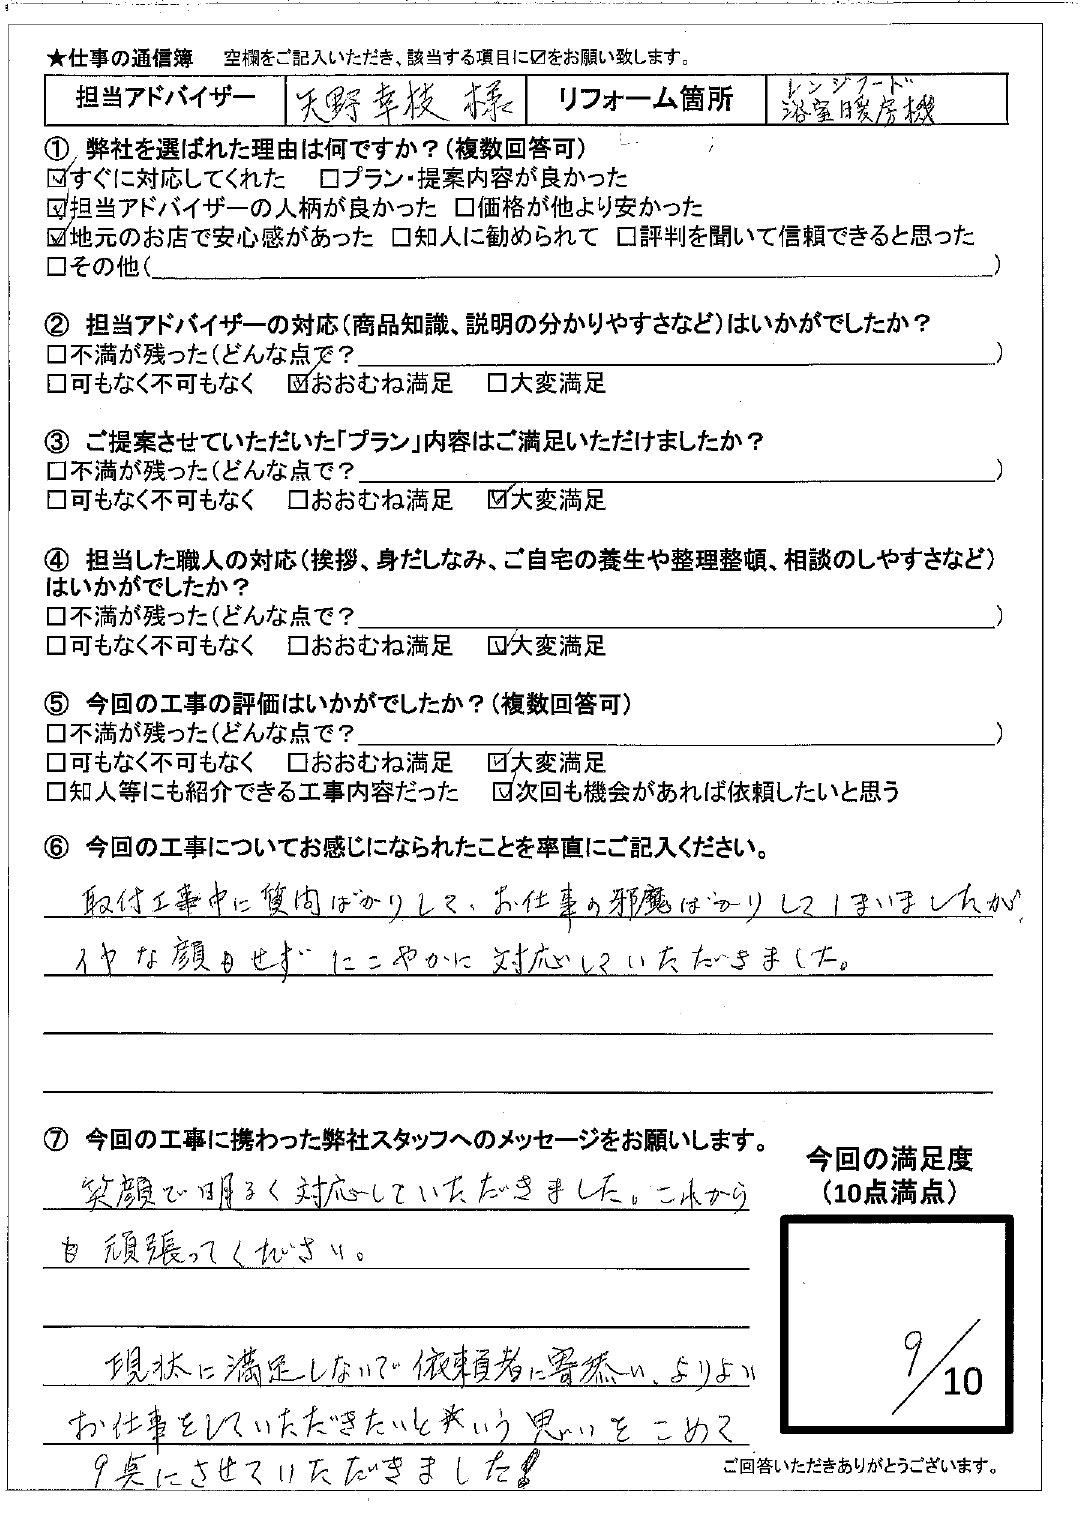 ★仕事の通信簿　空欄をご記入いただき、該当する項目に☑をお願い致します。
担当アドバイザー　矢野幸枝 様　リフォーム箇所　レンジフード
浴室暖房機
① 弊社を選ばれた理由は何ですか？（複数回答可）
☑すぐに対応してくれた　□プラン・提案内容が良かった
☑担当アドバイザーの人柄が良かった　□価格が他より安かった
☑地元のお店で安心感があった　□知人に勧められて　□評判を聞いて信頼できると思った
□その他（　）
② 担当アドバイザーの対応（商品知識、説明の分かりやすさなど）はいかがでしたか？
□不満が残った（どんな点で？　）
□可もなく不可もなく　☑おおむね満足　□大変満足
③ ご提案させていただいた「プラン」内容はご満足いただけましたか？
□不満が残った（どんな点で？　）
□可もなく不可もなく　□おおむね満足　☑大変満足
④ 担当した職人の対応（挨拶、身だしなみ、ご自宅の養生や整理整頓、相談のしやすさなど）
はいかがでしたか？
□不満が残った（どんな点で？　）
□可もなく不可もなく　□おおむね満足　☑大変満足
⑤ 今回の工事の評価はいかがでしたか？（複数回答可）
□不満が残った（どんな点で？　）
□可もなく不可もなく　□おおむね満足　☑大変満足
□知人等にも紹介できる工事内容だった　☑次回も機会があれば依頼したいと思う
⑥ 今回の工事についてお感じになられたことを率直にご記入ください。
取付工事中に質問ばかりして、お仕事の邪魔ばかりしてしまいましたが、
イヤな顔もせず にこやかに 対応していただきました。
⑦ 今回の工事に携わった弊社スタッフへのメッセージをお願いします。
笑顔で明るく対応していただきました。これから
も頑張ってください。
現状に満足しないで依頼者に寄添い、よりよい
お仕事をしていただきたいという思いをこめて
9点にさせていただきました！
今回の満足度
（10点満点）
9/10
ご回答いただきありがとうございます。